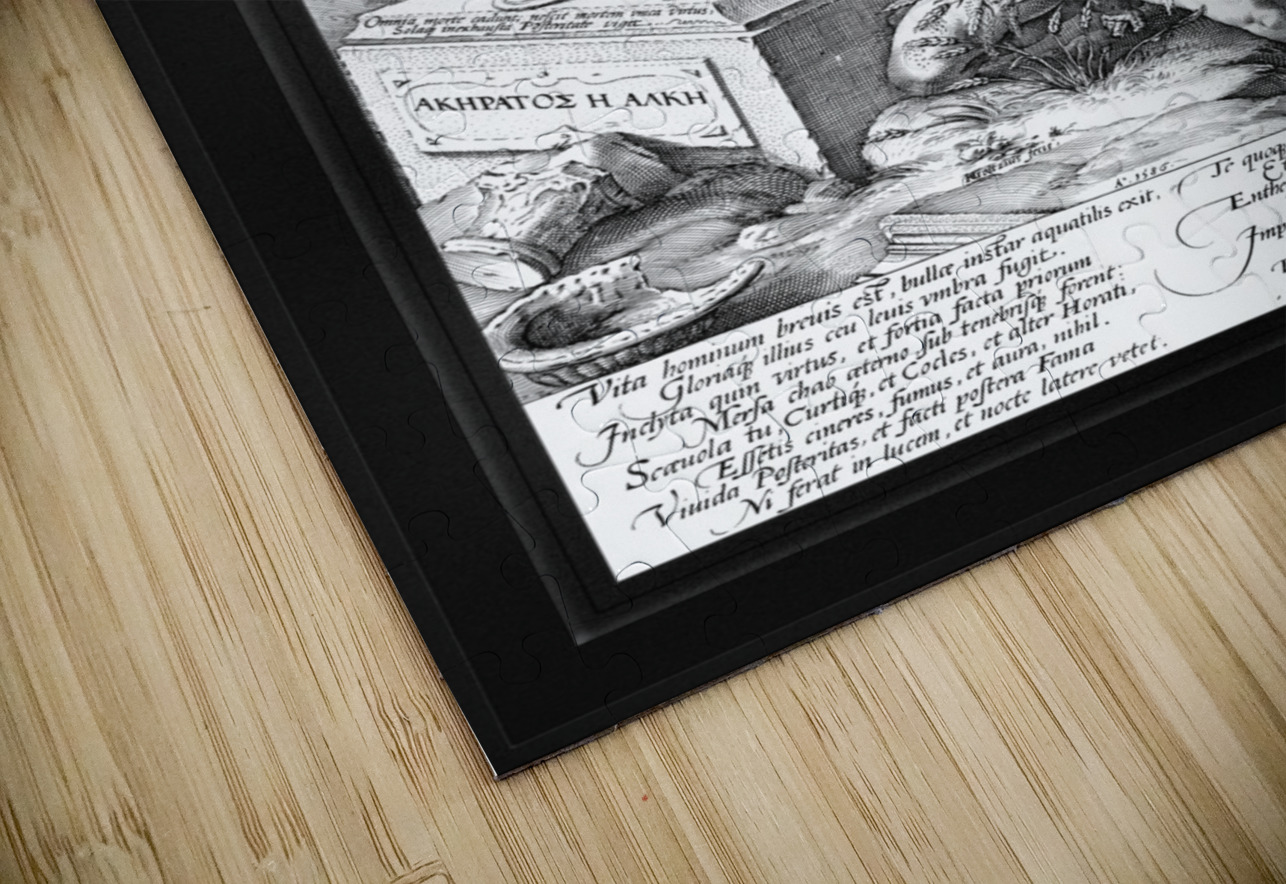 Omnia morte cadunt, nescit mortem unica virtus:
Solaq́ inexhausta Posteritate viget.
ΑΚΗΡΑΤΟΣ Η ΑΛΚΗ
A.º 1586.
Vita hominum breuis est, bullæ instar aquatilis exit,
Gloriaq́ illius ceu leuis vmbra fugit.
Inclyta quin virtus, et fortia facta priorum
Mersa chao æterno sub tenebrisq́ forent:
Scæuola tu, Curtiq́, et Cocles, et alter Horati,
Essetis cineres, fumus, et aura, nihil.
Viuida Posteritas, et facti postera Fama
Ni ferat in lucem, et nocte latere vetet.
Te